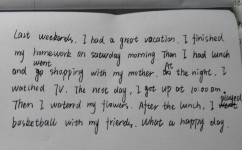 Last weekends. I had a great vacation. I finished
my homework on saturday morning. Then I had lunch
and went shopping with my mother. At the night. I
watched TV. The next day, I got up at 10:00 am.
Then I waterd my flowers. After the lunch, I played
basketball with my friends. What a happy day.